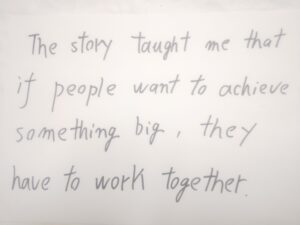 The story taught me that
if people want to achieve
something big, they
have to work together.